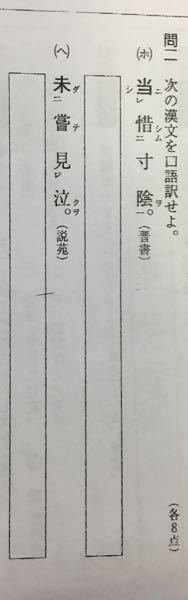 問二 次の漢文を口語訳せよ。 (各8点)
(ホ) 当ニシレ惜シム二寸陰ヲ一。(晋書)
(ヘ) 未ダニ嘗テ見レ泣クヲ。(説苑)